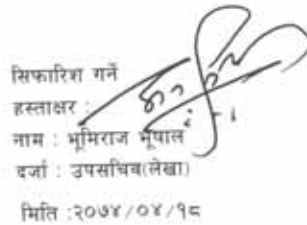 सिफारिश गर्ने
हस्ताक्षर :
नाम : भूमिराज भूपाल
दर्जा : उपसचिव(लेखा)
मिति :२०७४/०४/१८